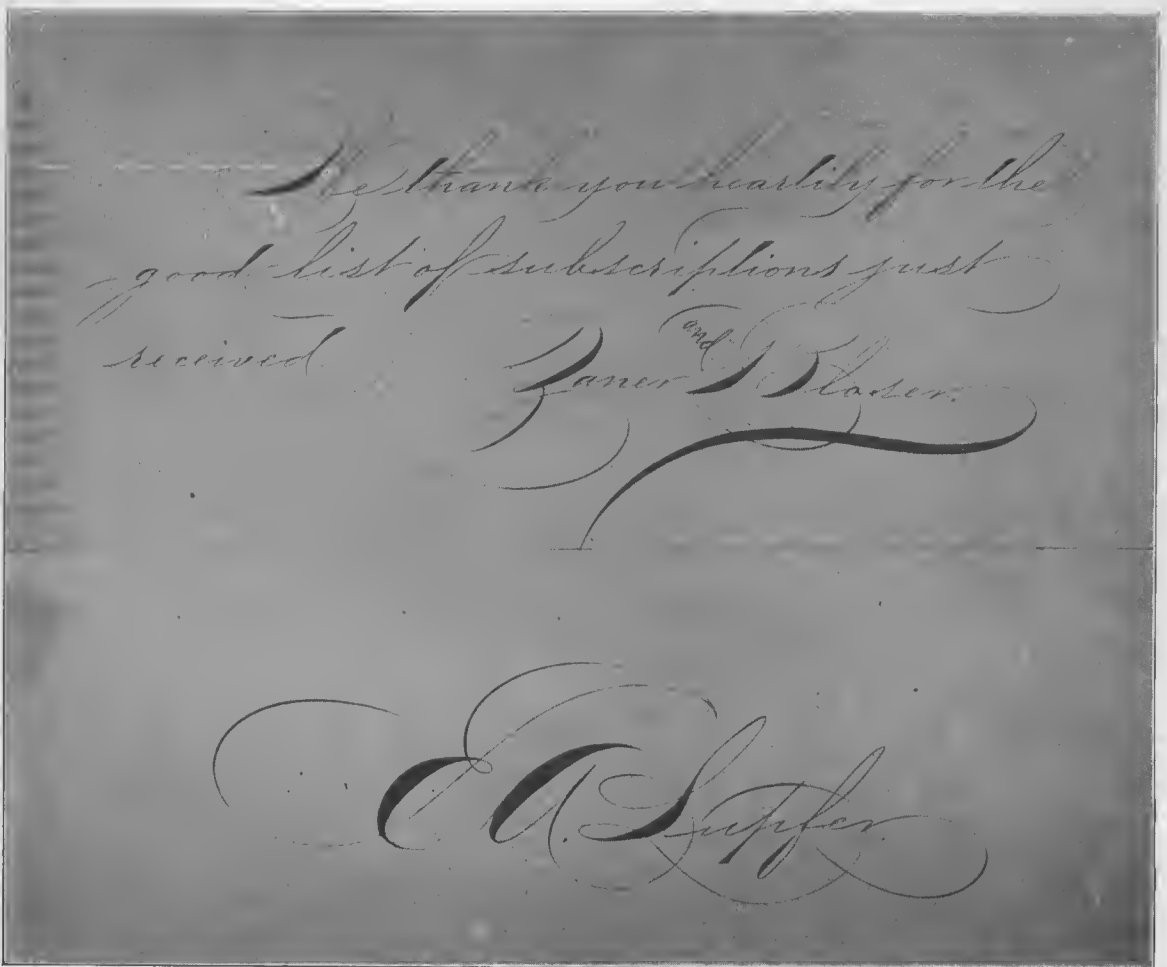 We thank you heartily for the
good list of subscriptions just
received. Zaner and Bloser.
E.A. Lupfer.